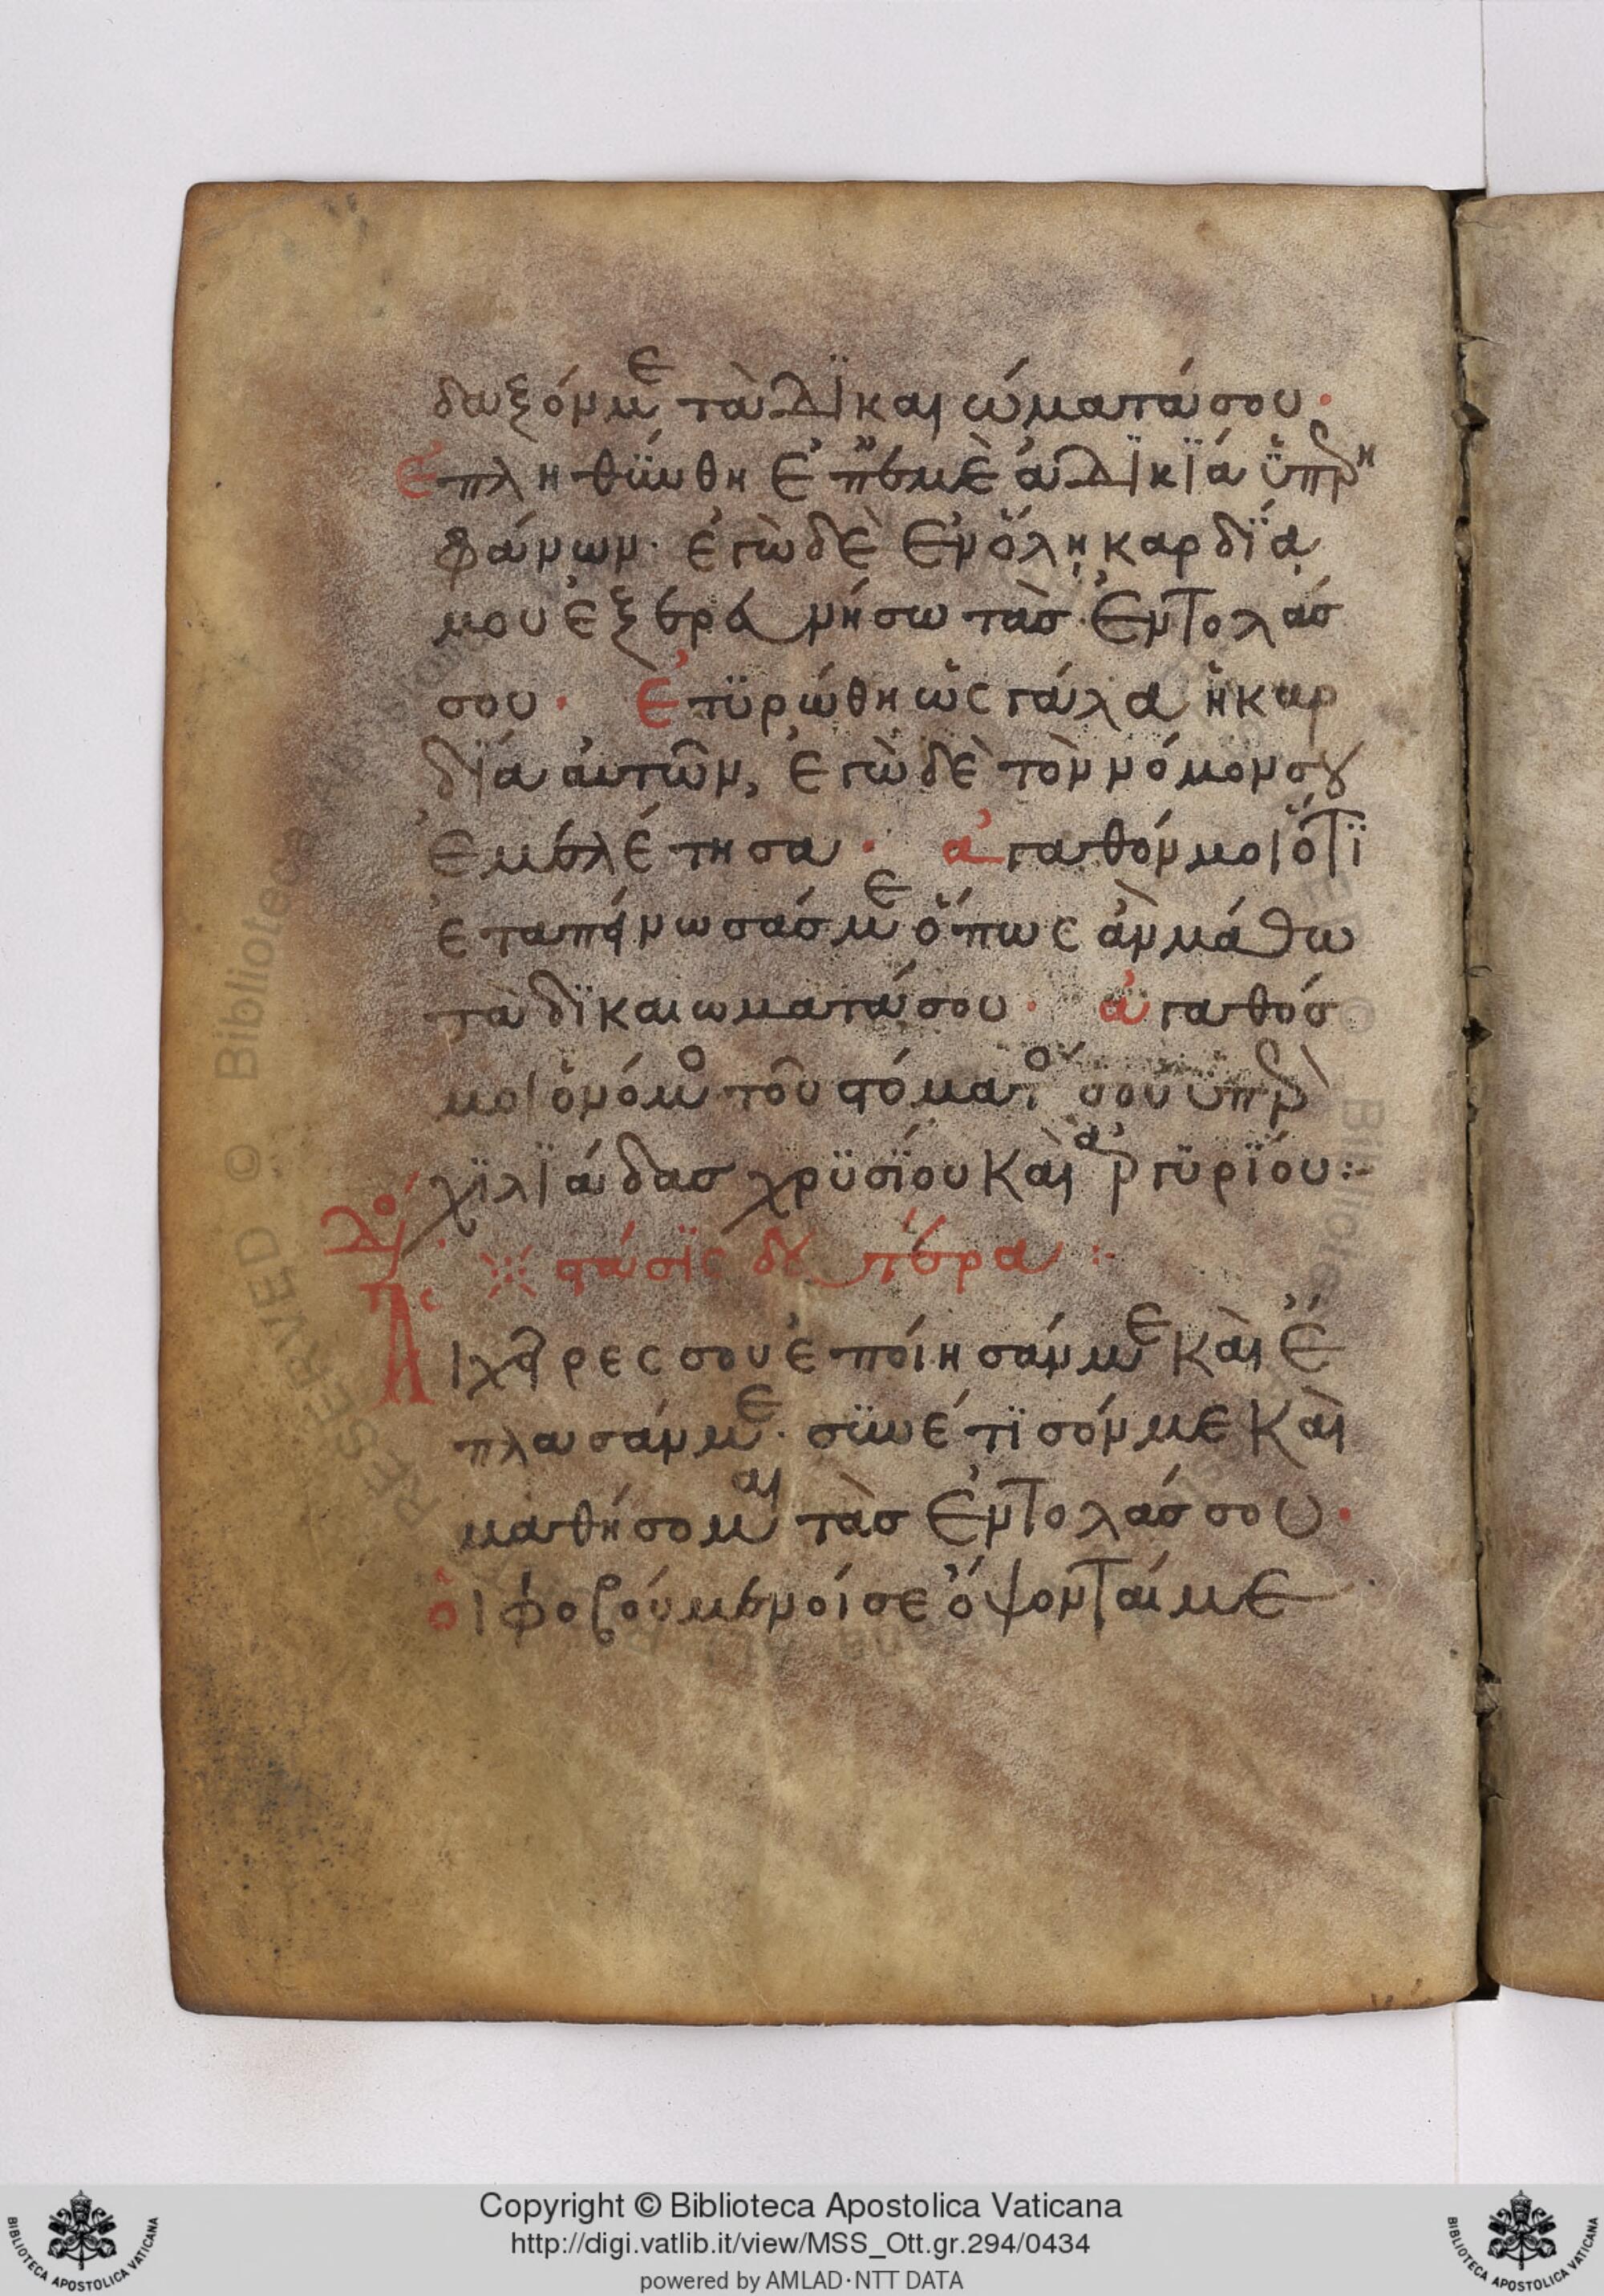 δαξόν με τὰ δϊκαιώματά σου·
Ἐπληθϋνθη ἐπ' ἐμὲ ἀδικϊά ϋπερη
φάνων· ἐγὼ δὲ ἐν ὅλῃ καρδϊᾳ
μου ἐξερευνήσω τὰσ ἐντολάσ
σου· Ἐτϋρώθη ὡς γάλα ἡ καρ
δϊά αὐτῶν, ἐγὼ δὲ τὸν νόμον σου
ἐμελέτησα· ἀγαθόν μοι ὅτϊ
ἐταπείνωσάσ με ὅπως ἂν μάθω
τὰ δϊκαιωματά σου· ἀγαθόσ
μοι ὁ νόμο τοῦ στόματο σου ϋπὲρ
χϊλϊάδασ χρϋσϊου καὶ ἀργϋρϊου:-
στάσϊς δευτέρα :-
Αἱ χεῖρες σου ἐποίησάν με καὶ ἔ
πλασάν με· σϋνέτϊσόν με καὶ
μαθήσομαι τὰσ ἐντολάσ σου·
οἱ φοβούμενοί σε ὄψονταί με
Copyright © Biblioteca Apostolica Vaticana
http://digi.vatlib.it/view/MSS_Ott.gr.294/0434
powered by AMLAD·NTT DATA
BIBLIOTECA APOSTOLICA VATICANA
BIBLIOTECA APOSTOLICA VATICANA